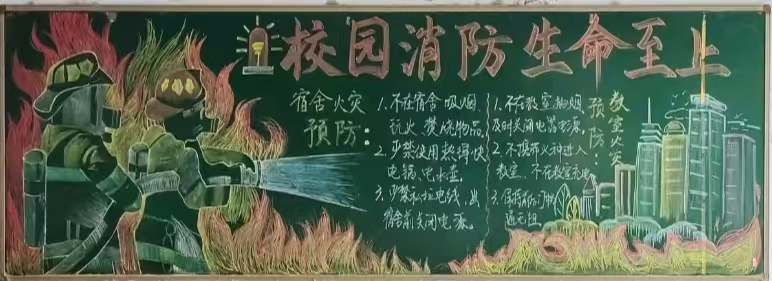 校园消防生命至上
宿舍火灾
预防：
1.不在宿舍吸烟
玩火、焚烧物品。
2.严禁使用热得快
电锅、电水壶。
3.严禁私拉电线，出
宿舍前关闭电源。
1.不在教室抽烟
及时关闭电器电源。
2.不携带火种进入
教室、不在教室充电
3.保持前后门畅
通无阻
教室火灾
预防：